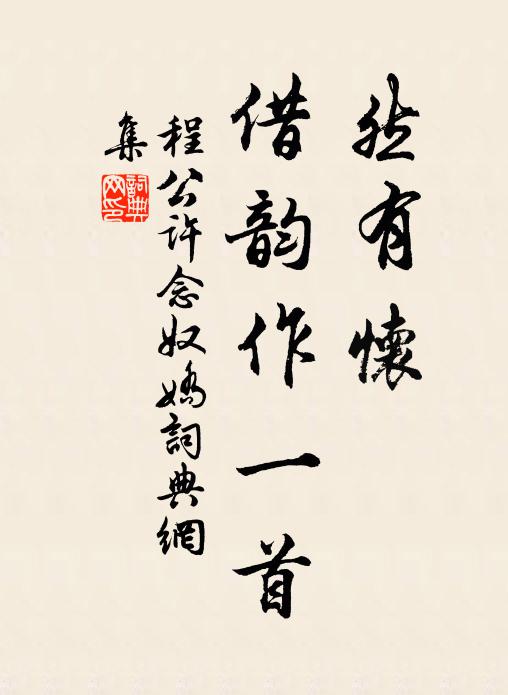 然有懷
借韵作一首
程公许念奴嬌詞典網
集
詞典網印